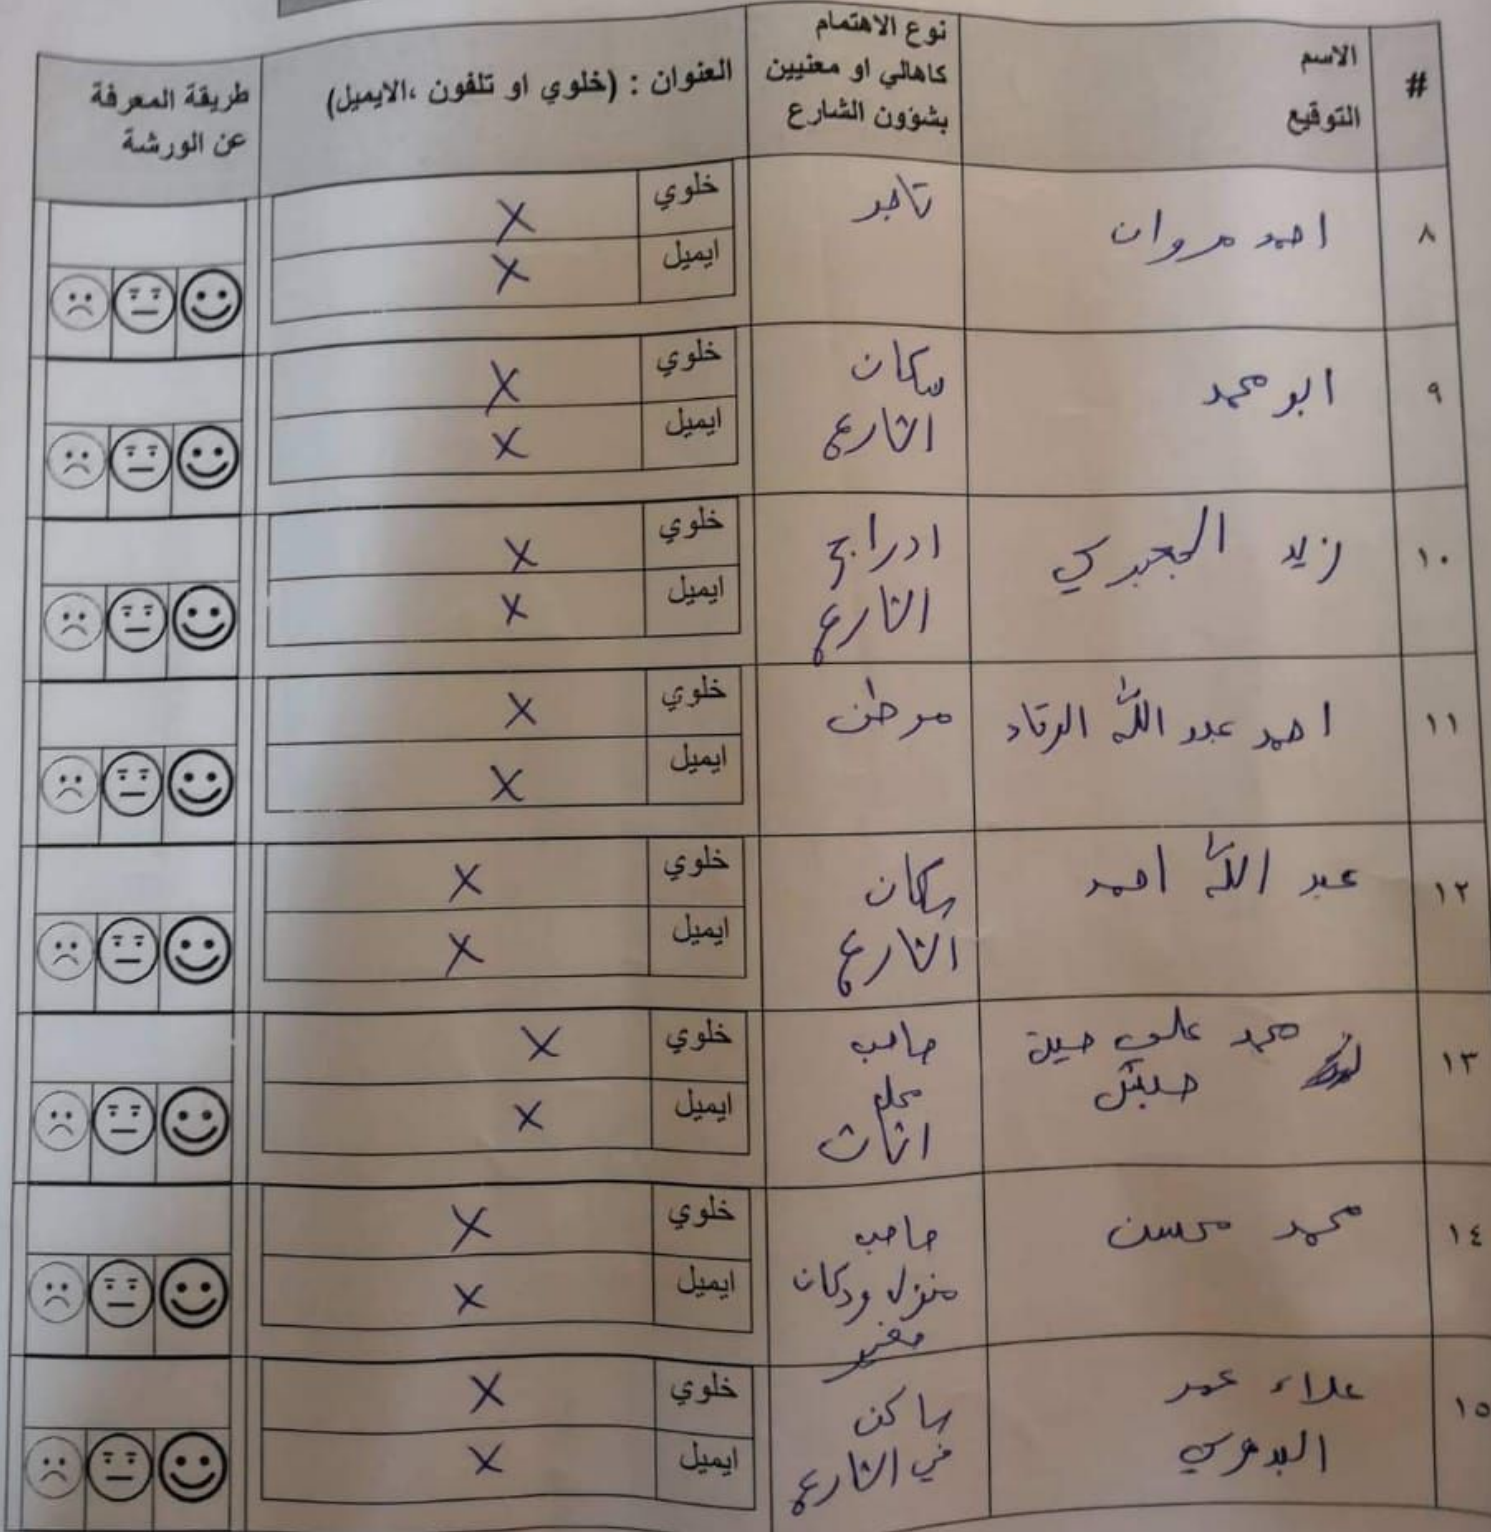 #
الاسم
التوقيع
نوع الاهتمام
كاهالي او معنيين
بشؤون الشارع
العنوان : (خلوي او تلفون ،الايميل)
طريقة المعرفة
عن الورشة
٨
احمد مروان
تاجر
خلوي X
ايميل X
٩
ابو محمد
سكان
الشارع
خلوي X
ايميل X
١٠
زيد الجعبري
ادراج
الشارع
خلوي X
ايميل X
١١
احمد عبد الله الرقاد
موطن
خلوي X
ايميل X
١٢
عبد الله احمد
سكان
الشارع
خلوي X
ايميل X
١٣
محمد علي حسين
صاحب
محل
اثاث
خلوي X
ايميل X
١٤
محمد محسن
صاحب
منزل ودكان
صغير
خلوي X
ايميل X
١٥
علاء عمر
البدوي
ساكن
في الشارع
خلوي X
ايميل X